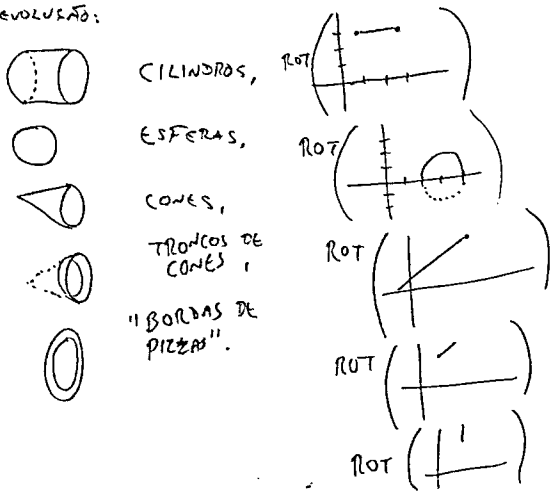 EVOLUSÃO:
CILINDROS,
ROT
ESFERAS,
ROT
CONES,
TRONCOS DE
CONES,
ROT
"BORDAS DE
PIZZAS".
ROT
ROT